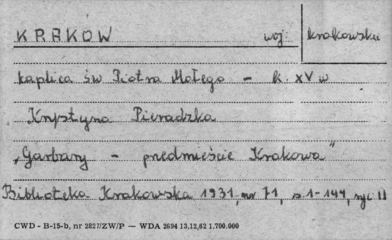 KRAKOW woj. krakowskie
kaplica św Piotra Małego - k. XV w
Krystyna Pieradzka
„Garbary - przedmieście Krakowa"
Biblioteka Krakowska 1931, nr 71, s. 1-144, ryc 11
CWD - B-15-b, nr 2827/ZW/P — WDA 2694 13,12,62 1.700.000